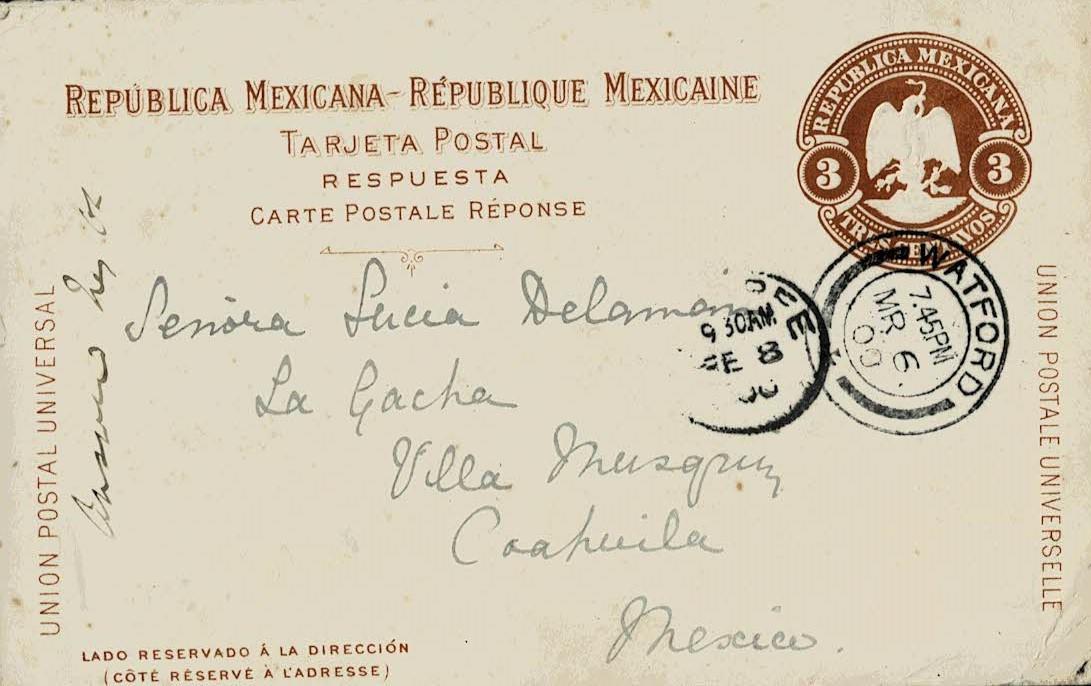 REPÚBLICA MEXICANA - RÉPUBLIQUE MEXICAINE
TARJETA POSTAL
RESPUESTA
CARTE POSTALE RÉPONSE
REPUBLICA MEXICANA
3 3
TRES CENTAVOS
WATFORD
7 45PM
MR 6
00
9 30AM
8
UNION POSTAL UNIVERSAL
Señora Lucia
La Gacha
Villa Musquiz
Coahuila
Mexico.
UNION POSTALE UNIVERSELLE
LADO RESERVADO Á LA DIRECCIÓN
(CÔTÉ RÉSERVÉ À L'ADRESSE)